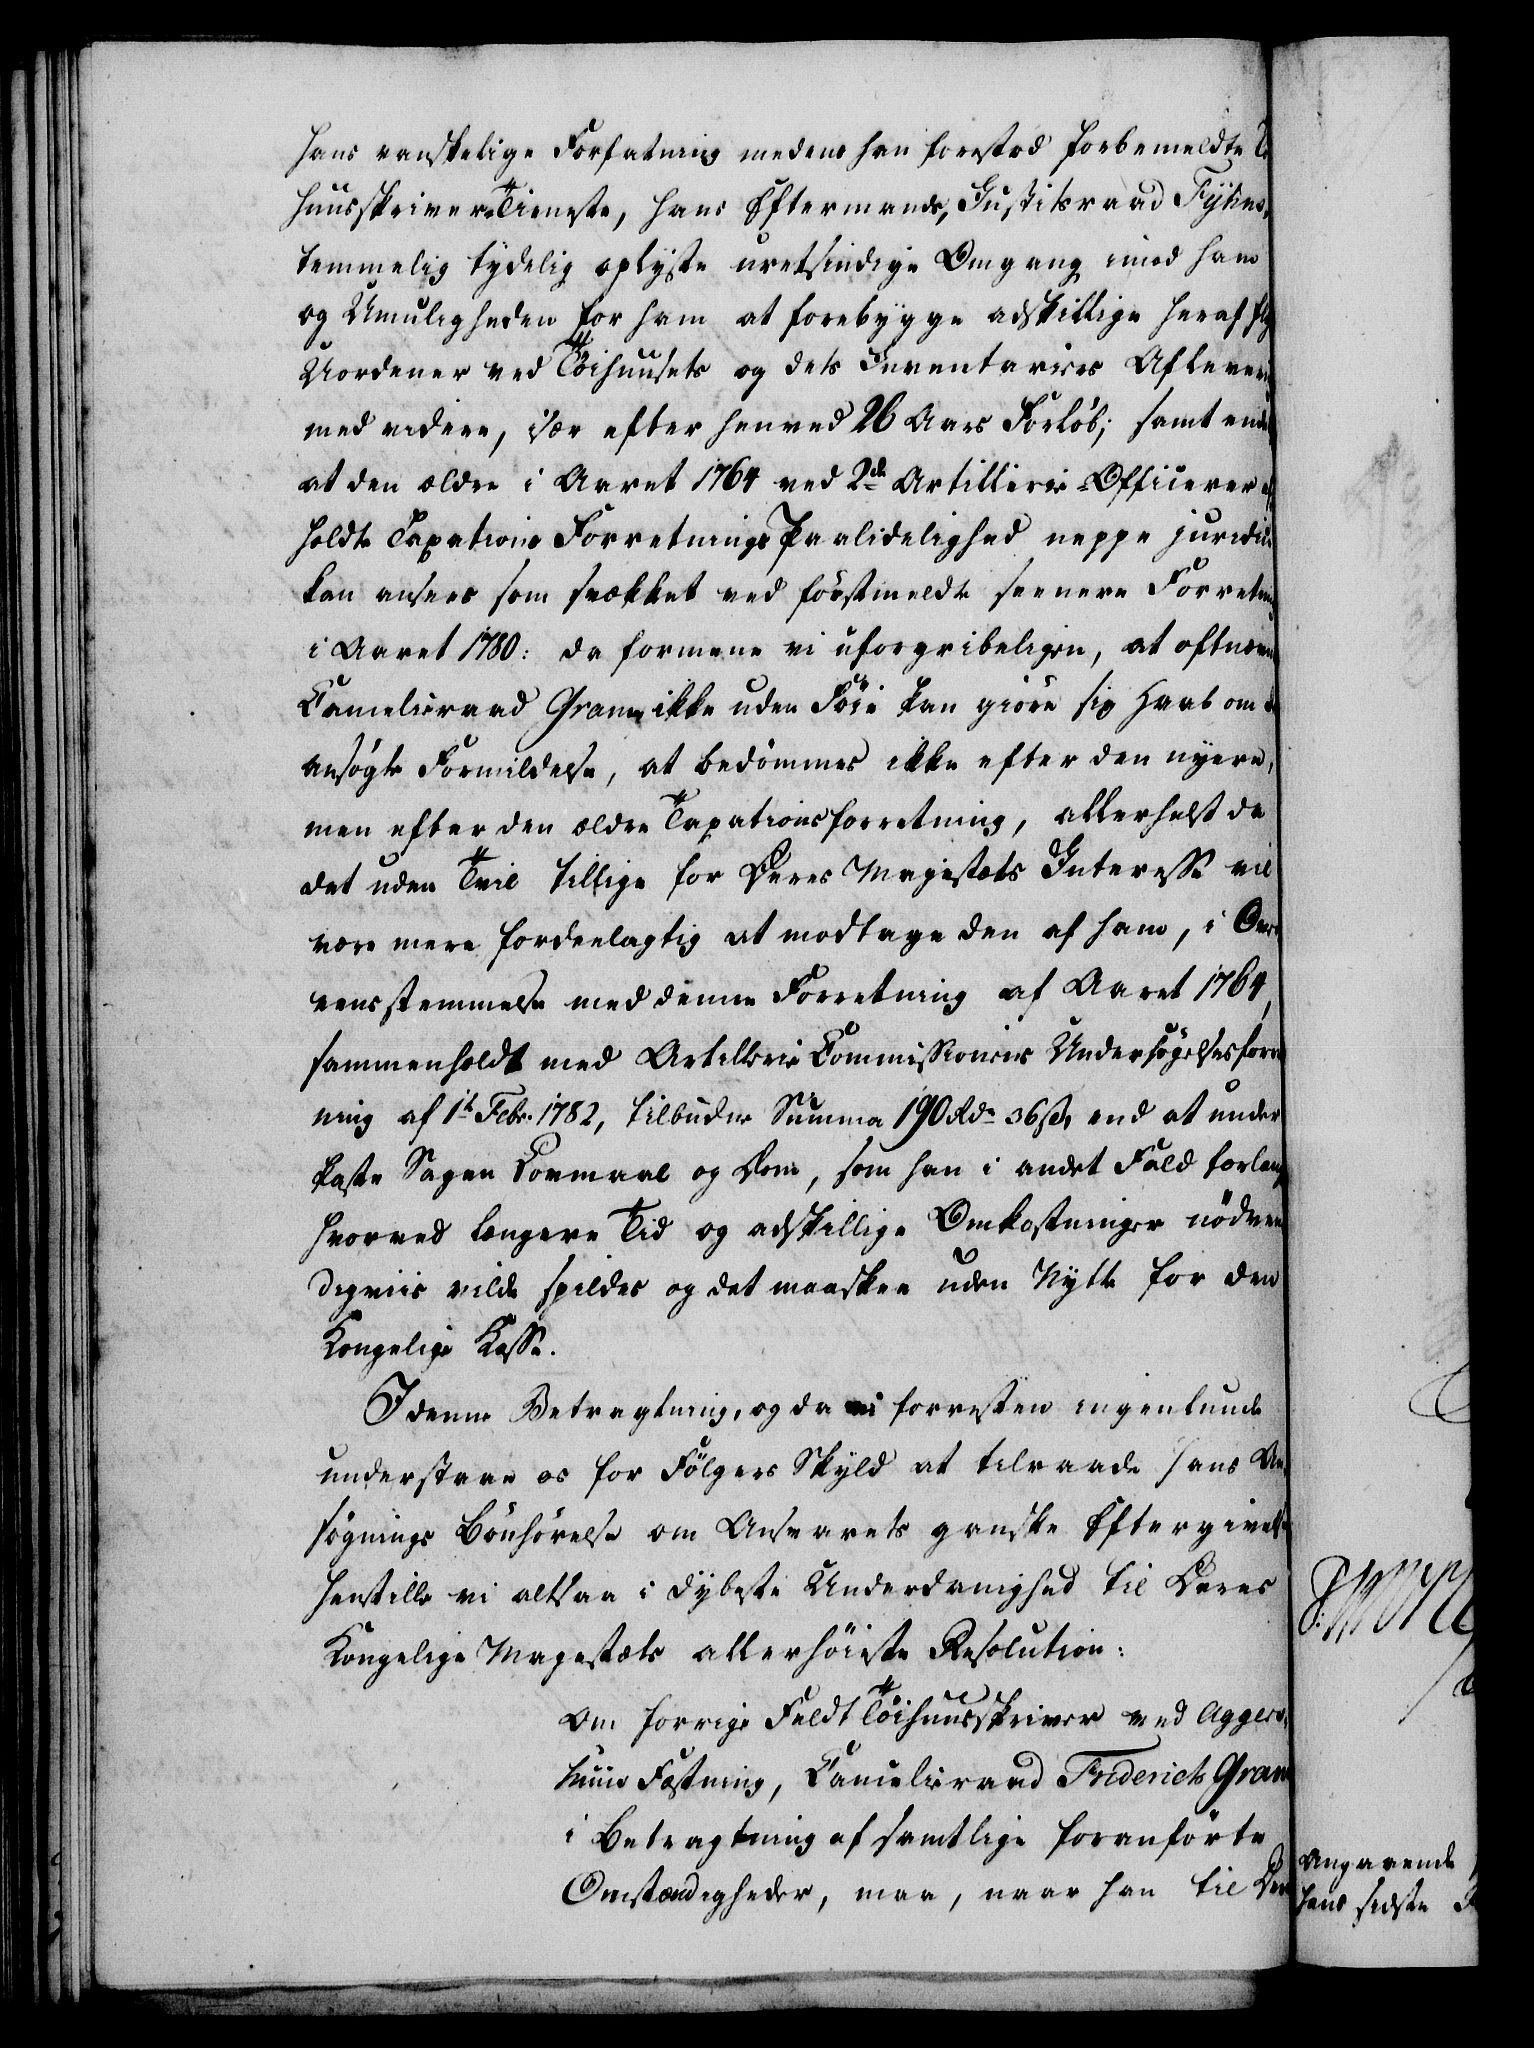 hans vanskelige Forfatning medens han forestod forbemeldte
huusskriver Tieneste, hans Eftermands, Justitsraad Fyhns
temmelig tydelig oplyste uretsindige Omgang imod ham
og Umuligheden for ham at forebygge adskillige heraf
Uordener ved Töihuusets og dets Inventariers Aflevering
med videre, især efter henved 26 Aars Forlöb; samt
at den ældre i Aaret 1764 ved 2de Artillerie Officerer
holdte Taxations Forretnings Paalidelighed neppe juridice
kan ansees som svækket ved förstmeldte seenere Forretning
i Aaret 1780: da formene vi uforgribeligen, at oftnævnte
Cancelieraad Gram ikke uden Föie kan giöre sig Haab om
ansögte Formildelse, at bedömmes ikke efter den nyere,
men efter den ældre Taxationsforretning, allerhelst da
det uden Tvil tillige for Deres Majestæts Interesse vil
være mere fordeelagtig at modtage den af ham, i Over
eensstemmelse med denne Forretning af Aaret 1764,
sammenholdt med Artillerie Commissionens Undersögelsesforret
ning af 1t Febr. 1782, tilbudne Summa 190 Rdr 36 ß, end at under
kaste Sagen Lovmaal og Dom, som han i andet Fald forlanger
hvorved længere Tid og adskillige Omkostninger nödven
digviis vilde spildes og det maaskee uden Nytte for den
Kongelige Kasse.
I denne Betragtning, og da vi forresten ingenlunde
understaae os for Fölgers Skyld at tilraade hans An
sögnings Bönhörelse om Ansvarets ganske Eftergivelse
henstille vi altsaa i dybeste Underdanighed til Deres
Kongelige Majestæts allerhöieste Resolution:
Om forrige Feldt Töihuusskriver ved Aggers
huus Fæstning, Cancelieraad Friderich Gram
i Betragtning af samtlige foranförte
Omstændigheder, maa, naar han til
Angaaende
hans sidste